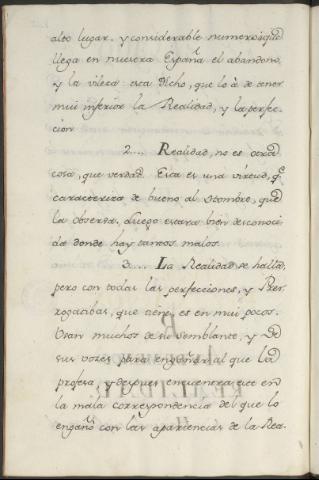 alto lugar. y considerable numero: q̃
llega en nuestra España el abandono,
y la vileza esta dicho, que lo à de tener
mui inferior la Realidad, y la perfec-
cion
2.... Realidad, no es otra
cosa, que verdad. Esta es una virtud, q.e
caracteriza de bueno al Hombre, que
la observa. Luego estarà bien desconoci-
da donde hay tantos malos.
3.... La Realidad se halla,
pero con todas las perfecciones, y Prer-
rogatibas, que tiene, es en mui pocos.
Usan muchos de su semblante, y de
sus vozes para engañar al que la
profesa, y despues encuentra este en
la mala correspondencia del que lo
engañó con las apariencias de la Rea-